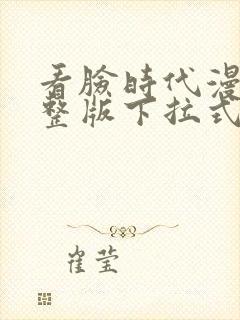 看脸時代漫
整版下拉式
崔莹